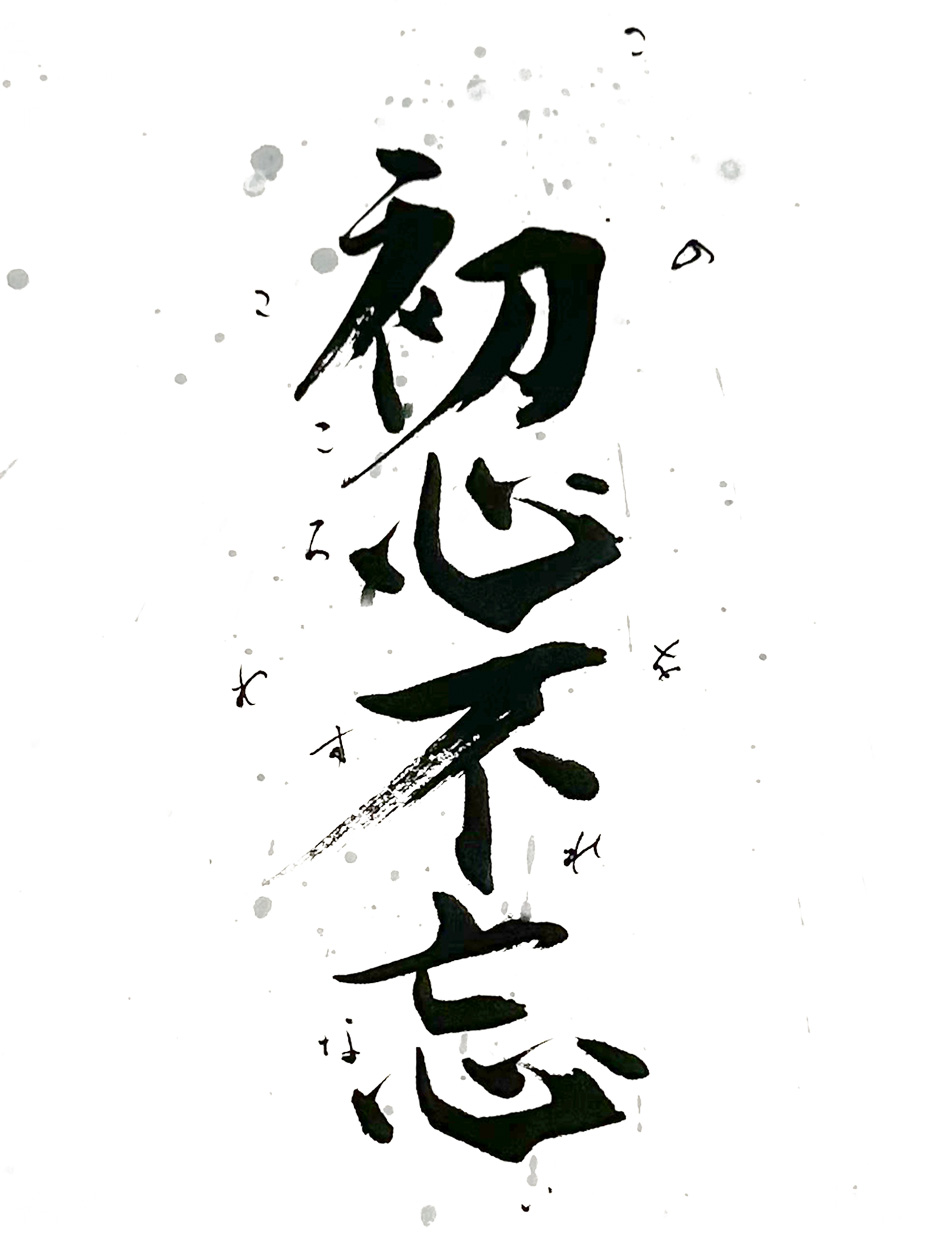 初心不忘
このこころをわすれない